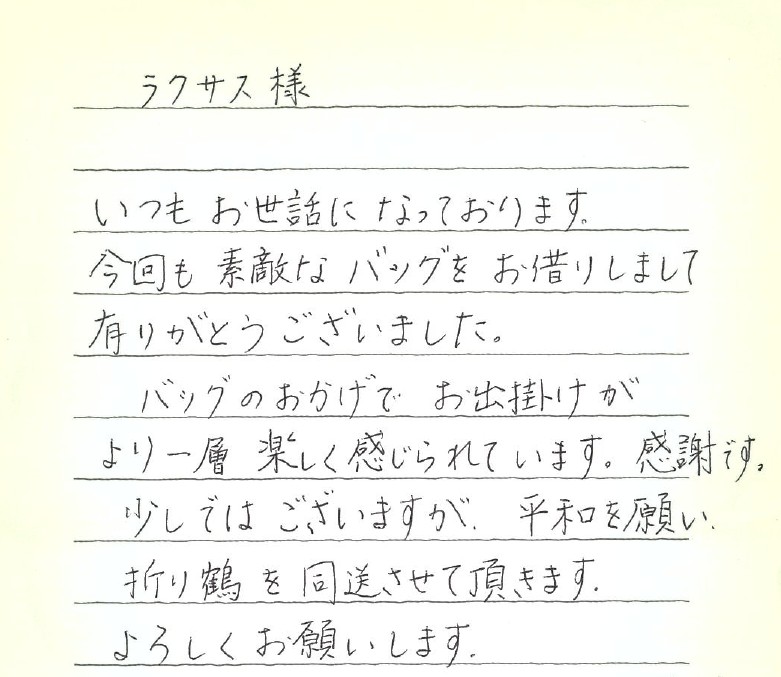 ラクサス様
いつもお世話になっております。
今回も素敵なバッグをお借りしまして
有りがとうございました。
バッグのおかげでお出掛けが
より一層楽しく感じられています。感謝です。
少しではございますが、平和を願い、
折り鶴を同送させて頂きます。
よろしくお願いします。